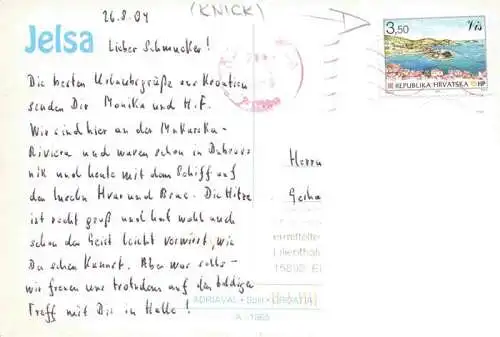 26.8.04
(KNICK)
Jelsa
Lieber Schmucker!
Die besten Urlaubsgrüße aus Kroatien
senden Dir Monika und H.F.
Wir sind hier an der Makarska-
Riviera und waren schon in Dubrov
nik und heute mit dem Schiff auf
den Inseln Hvar und Brac. Die Hitze
ist recht groß und hat wohl auch
schon den Geist leicht verwirrt, wie
Du sehen kannst. Aber was solls –
wir freuen uns trotzdem auf den baldigen
Treff mit Dir in Halle!
3,50
Vis
REPUBLIKA HRVATSKA
HP
Herrn
Gerha
ermittelte
Lilienthals
15890 Ei
ADRIAVAL • Split • CROATIA
A - 1865